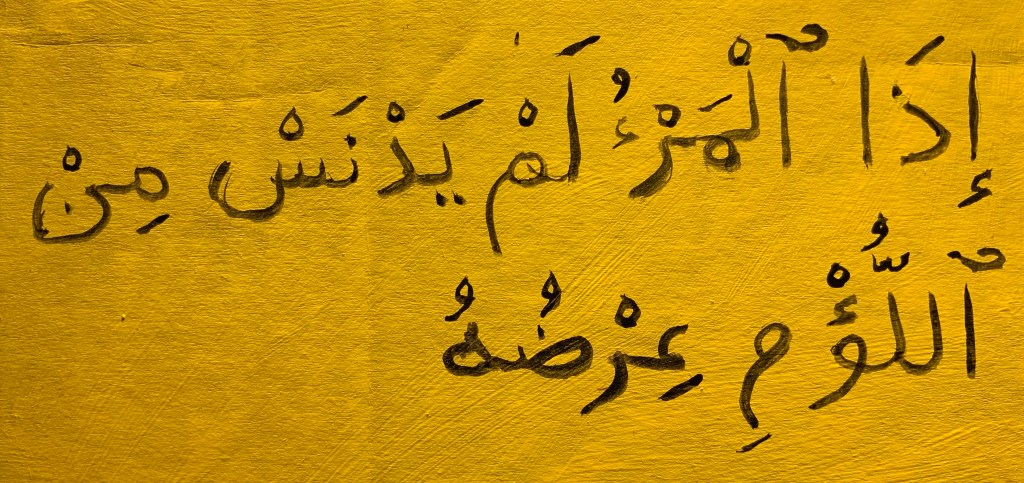 إِذَا ٱلْمَرْءُ لَمْ يَدْنَسْ مِنْ
ٱللُّؤْمِ عِرْضُهُ